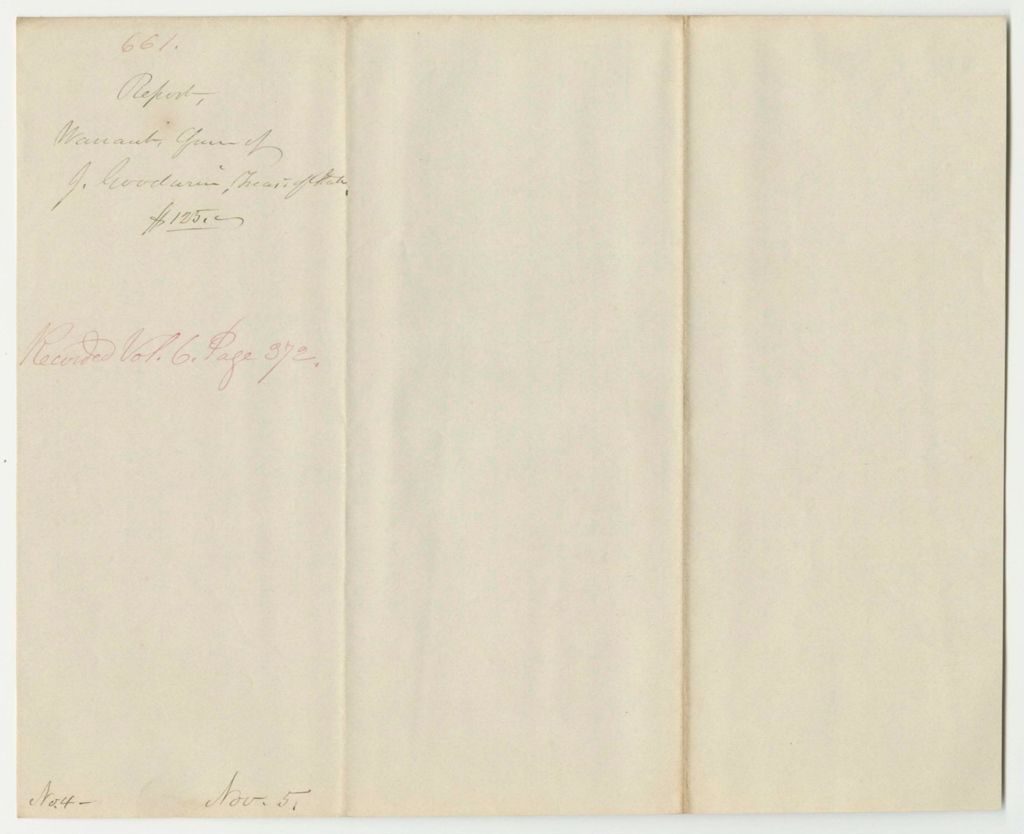 661.
Report,
Warrant, favr of
J. Goodwin, Treas. of State.
$125.
Recorded Vol. 6. Page 372.
No. 4 - Nov. 5.